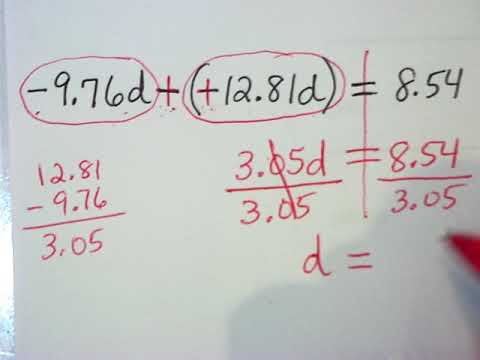 -9.76d + (+12.81d) = 8.54
12.81
- 9.76
3.05
3.05d = 8.54
3.05 3.05
d =